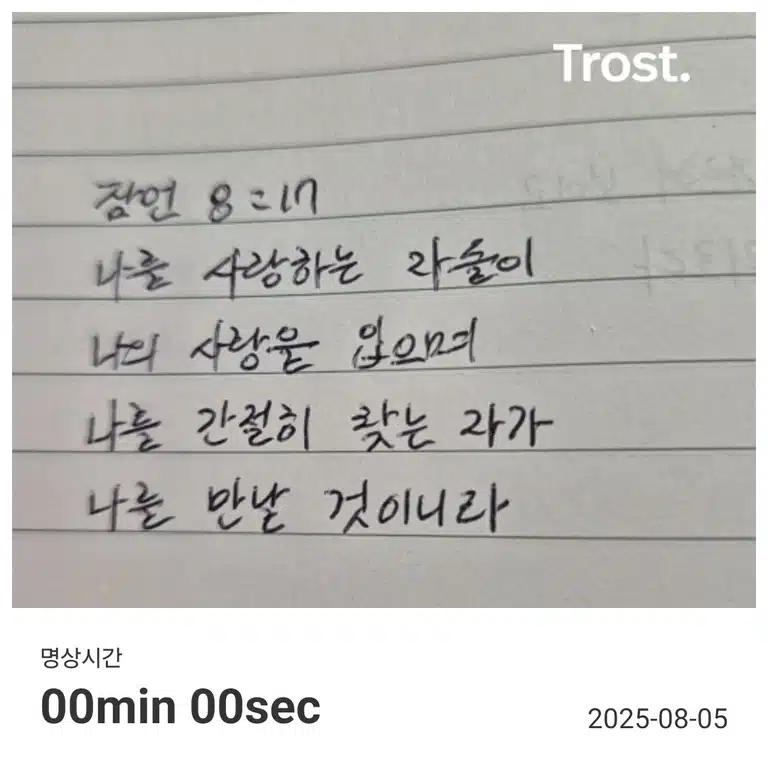 Trost.
잠언 8:17
나를 사랑하는 자들이
나의 사랑을 입으며
나를 간절히 찾는 자가
나를 만날 것이니라
명상시간
00min 00sec
2025-08-05